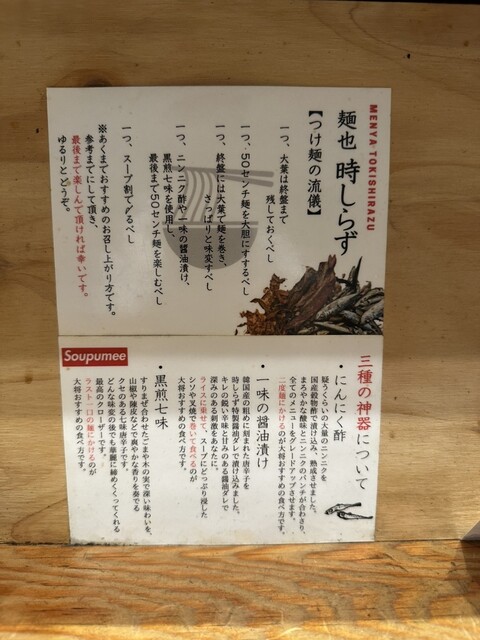 MENYA TOKISHIRAZU
麺也 時しらず
【つけ麺の流儀】
一つ、大葉は終盤まで
残しておくべし
一つ、50センチ麺を大胆にすするべし
一つ、終盤には大葉で麺を巻き、
さっぱりと味変すべし
一つ、ニンニク酢や一味の醤油漬け、
黒煎七味を使用し、
最後まで50センチ麺を楽しむべし
一つ、スープ割で〆るべし
※あくまでおすすめのお召し上がり方です。
参考までにして頂き、
最後まで楽しんで頂ければ幸いです。
ゆるりとどうぞ。
Soupumee
三種の神器について
・にんにく酢
疑うくらいの大量のニンニクを
国産穀物酢で漬け込み、熟成させました。
まろやかな酸味とニンニクのパンチが合わさり、
全てのメニューをグレードアップさせます。
二度麺にかけるのが大将おすすめの食べ方です。
・一味の醤油漬け
韓国産の粗めに刻まれた唐辛子を
時しらず特製醤油ダレで漬け込みました。
キレの鋭い辛味と甘みのある醤油ダレで
深みのある刺激をあなたに。
ライスに乗せて、スープにどっぷり浸した
シソや叉焼で巻いて食べるのが
大将おすすめの食べ方です。
・黒煎七味
すりまぜ合わせたごまや木の実で深い味わいを、
山椒や陳皮などで爽やかな香りを奏でる
クセのある七味唐辛子です。
どんな味変の後でも華麗に締めくくってくれる
最高のクローザーです。
ラスト一口の麺にかけるのが
大将おすすめの食べ方です。